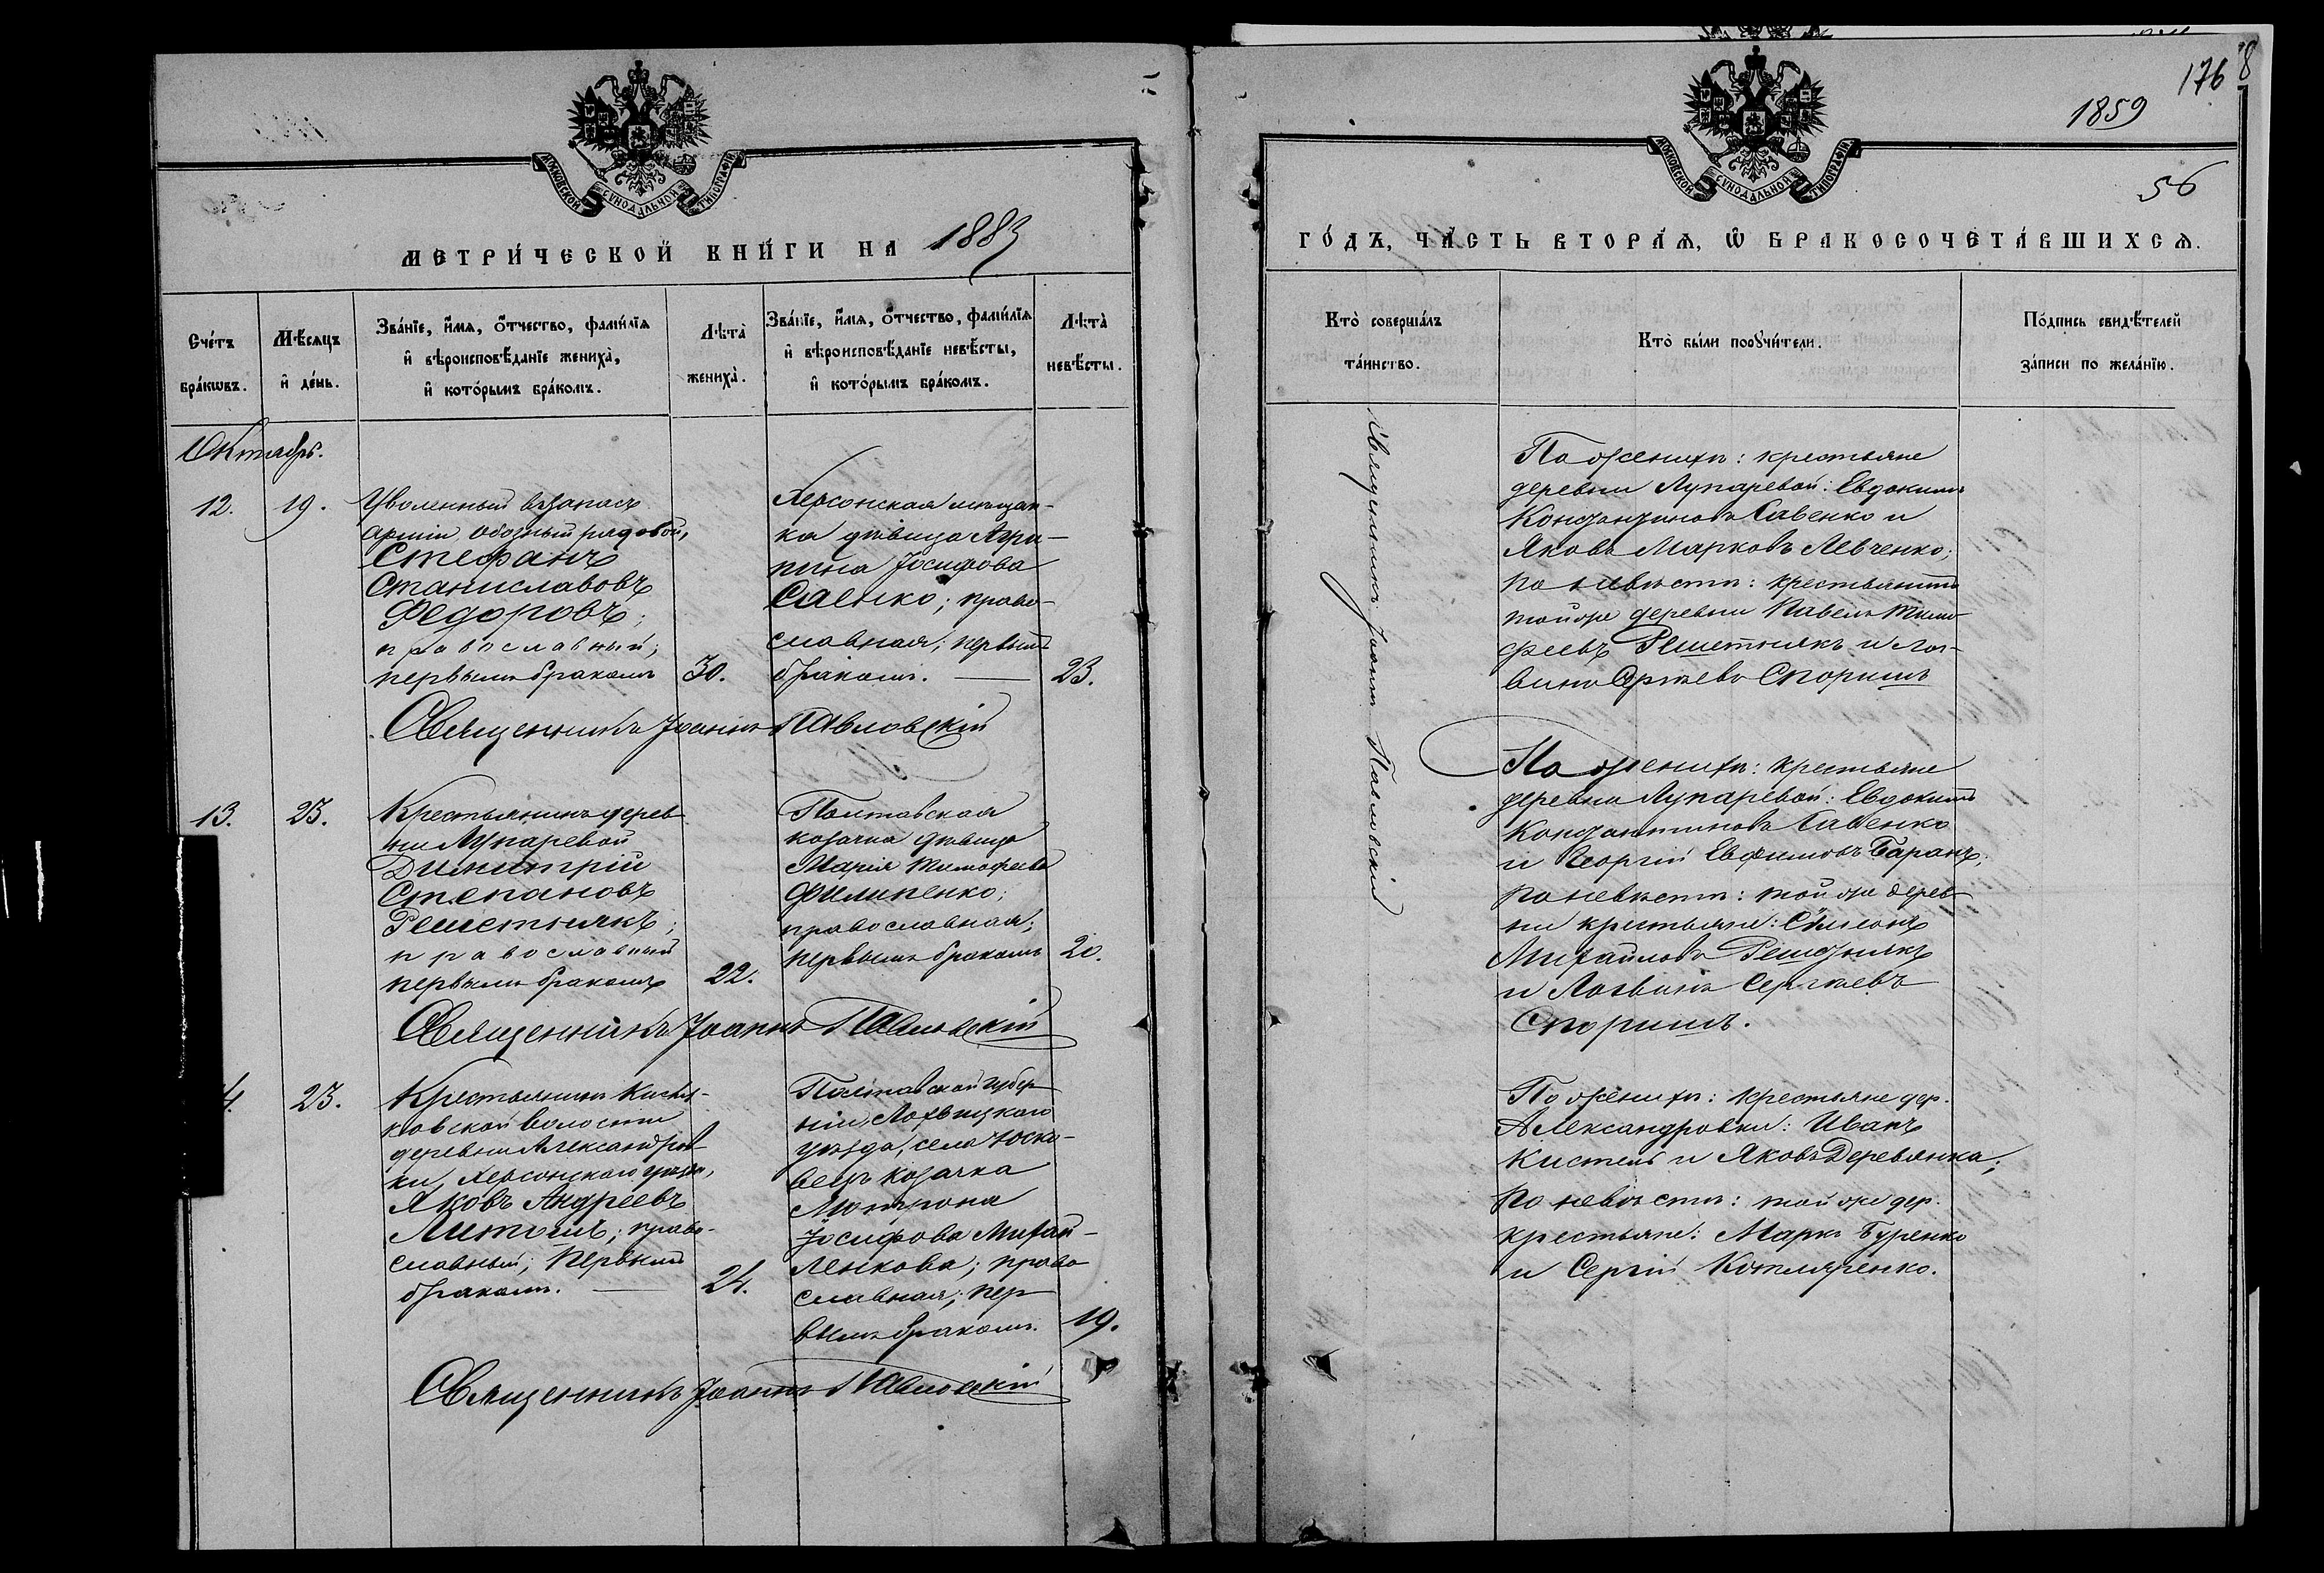 МОСКОВСКОЙ СУНОДАЛЬНОЙ ТИПОГРАФІИ
МЕТРИ́ЧЕСКОЙ КНИ́ГИ НА 1883
Сче́тъ бра́кѡвъ.
Мѣ́сяцъ и҆ де́нь.
Зва́нїе, и҆́мѧ, ѻ҆́тчество, фами́лїѧ
и҆ вѣроисповѣ́данїе жениха̀,
и҆ кото́рымъ бра́комъ.
Лѣта̀ жениха̀.
Зва́нїе, и҆́мѧ, ѻ҆́тчество, фами́лїѧ
и҆ вѣроисповѣ́данїе невѣ́сты,
и҆ кото́рымъ бра́комъ.
Лѣта̀ невѣ́сты.
Октябрь.
12.
19.
Уволенный въ запасъ
арміи обозный рядовой,
Стефанъ
Станиславовъ
Федоровъ;
православный;
первымъ бракомъ
30.
Херсонская мѣщан-
ка дѣвица Агри-
пина Іосифова
Саенко; право-
славная; первымъ
бракомъ.
23.
Священникъ Іоаннъ Павловскій
13.
23.
Крестьянинъ дерев
ни Лупаревой
Димитрій
Степановъ
Решетнякъ;
православный
первымъ бракомъ
22.
Полтавская
козачка дѣвица
Марія Тимофеева
Филипенко;
православная;
первымъ бракомъ
20.
Священникъ Іоаннъ Павловскій
4.
23.
Крестьянинъ
ковской волости
деревни Александров
ки, Херсонскаго уѣзда,
Яковъ Андреевъ
право-
славный; первымъ
бракомъ.
24.
Полтавской губер
ніи, Лохвицкаго
уѣзда, села Юско-
вецъ козачка
Мотрона
Іосифова Михай-
ленкова; право
славная; пер
вымъ бракомъ.
19.
Священникъ Іоаннъ Павловскій
176
8
1859
56
МОСКОВСКОЙ СУНОДАЛЬНОЙ ТИПОГРАФІИ
ГО́ДЪ, ЧА́СТЬ ВТОРА́Ѧ, Ѡ҆ БРАКОСОЧЕТА́ВШИХСѦ.
Кто̀ соверша́лъ
та́инство.
Кто̀ бы́ли порꙋчи́тели.
По́дпись свидѣ́телей
за́писи по жела́нїю.
Священникъ Іоаннъ Павловскій
По женихѣ: крестьяне
деревни Лупаревой: Евдокимъ
Константиновъ Савенко и
Яковъ Марковъ Левченко;
по невѣстѣ: крестьянинъ
той же деревни Павелъ Тимо
феевъ Решетнякъ и Лог-
винъ Сергѣевъ Споришъ
По женихѣ: крестьяне
деревни Лупаревой: Евдокимъ
Константиновъ Савенко
и Георгій Евфимовъ Баранъ;
по невѣстѣ: той же дерев
ни крестьяне: Симеонъ
Михайловъ Решетнякъ
и Логвинъ Сергѣевъ
Споришъ.
По женихѣ: крестьяне дер.
Александровки: Иванъ
Кистень и Яковъ Деревянка;
по невѣстѣ: той же дер.
крестьяне: Марко Буренко
и Сергій Котляренко.